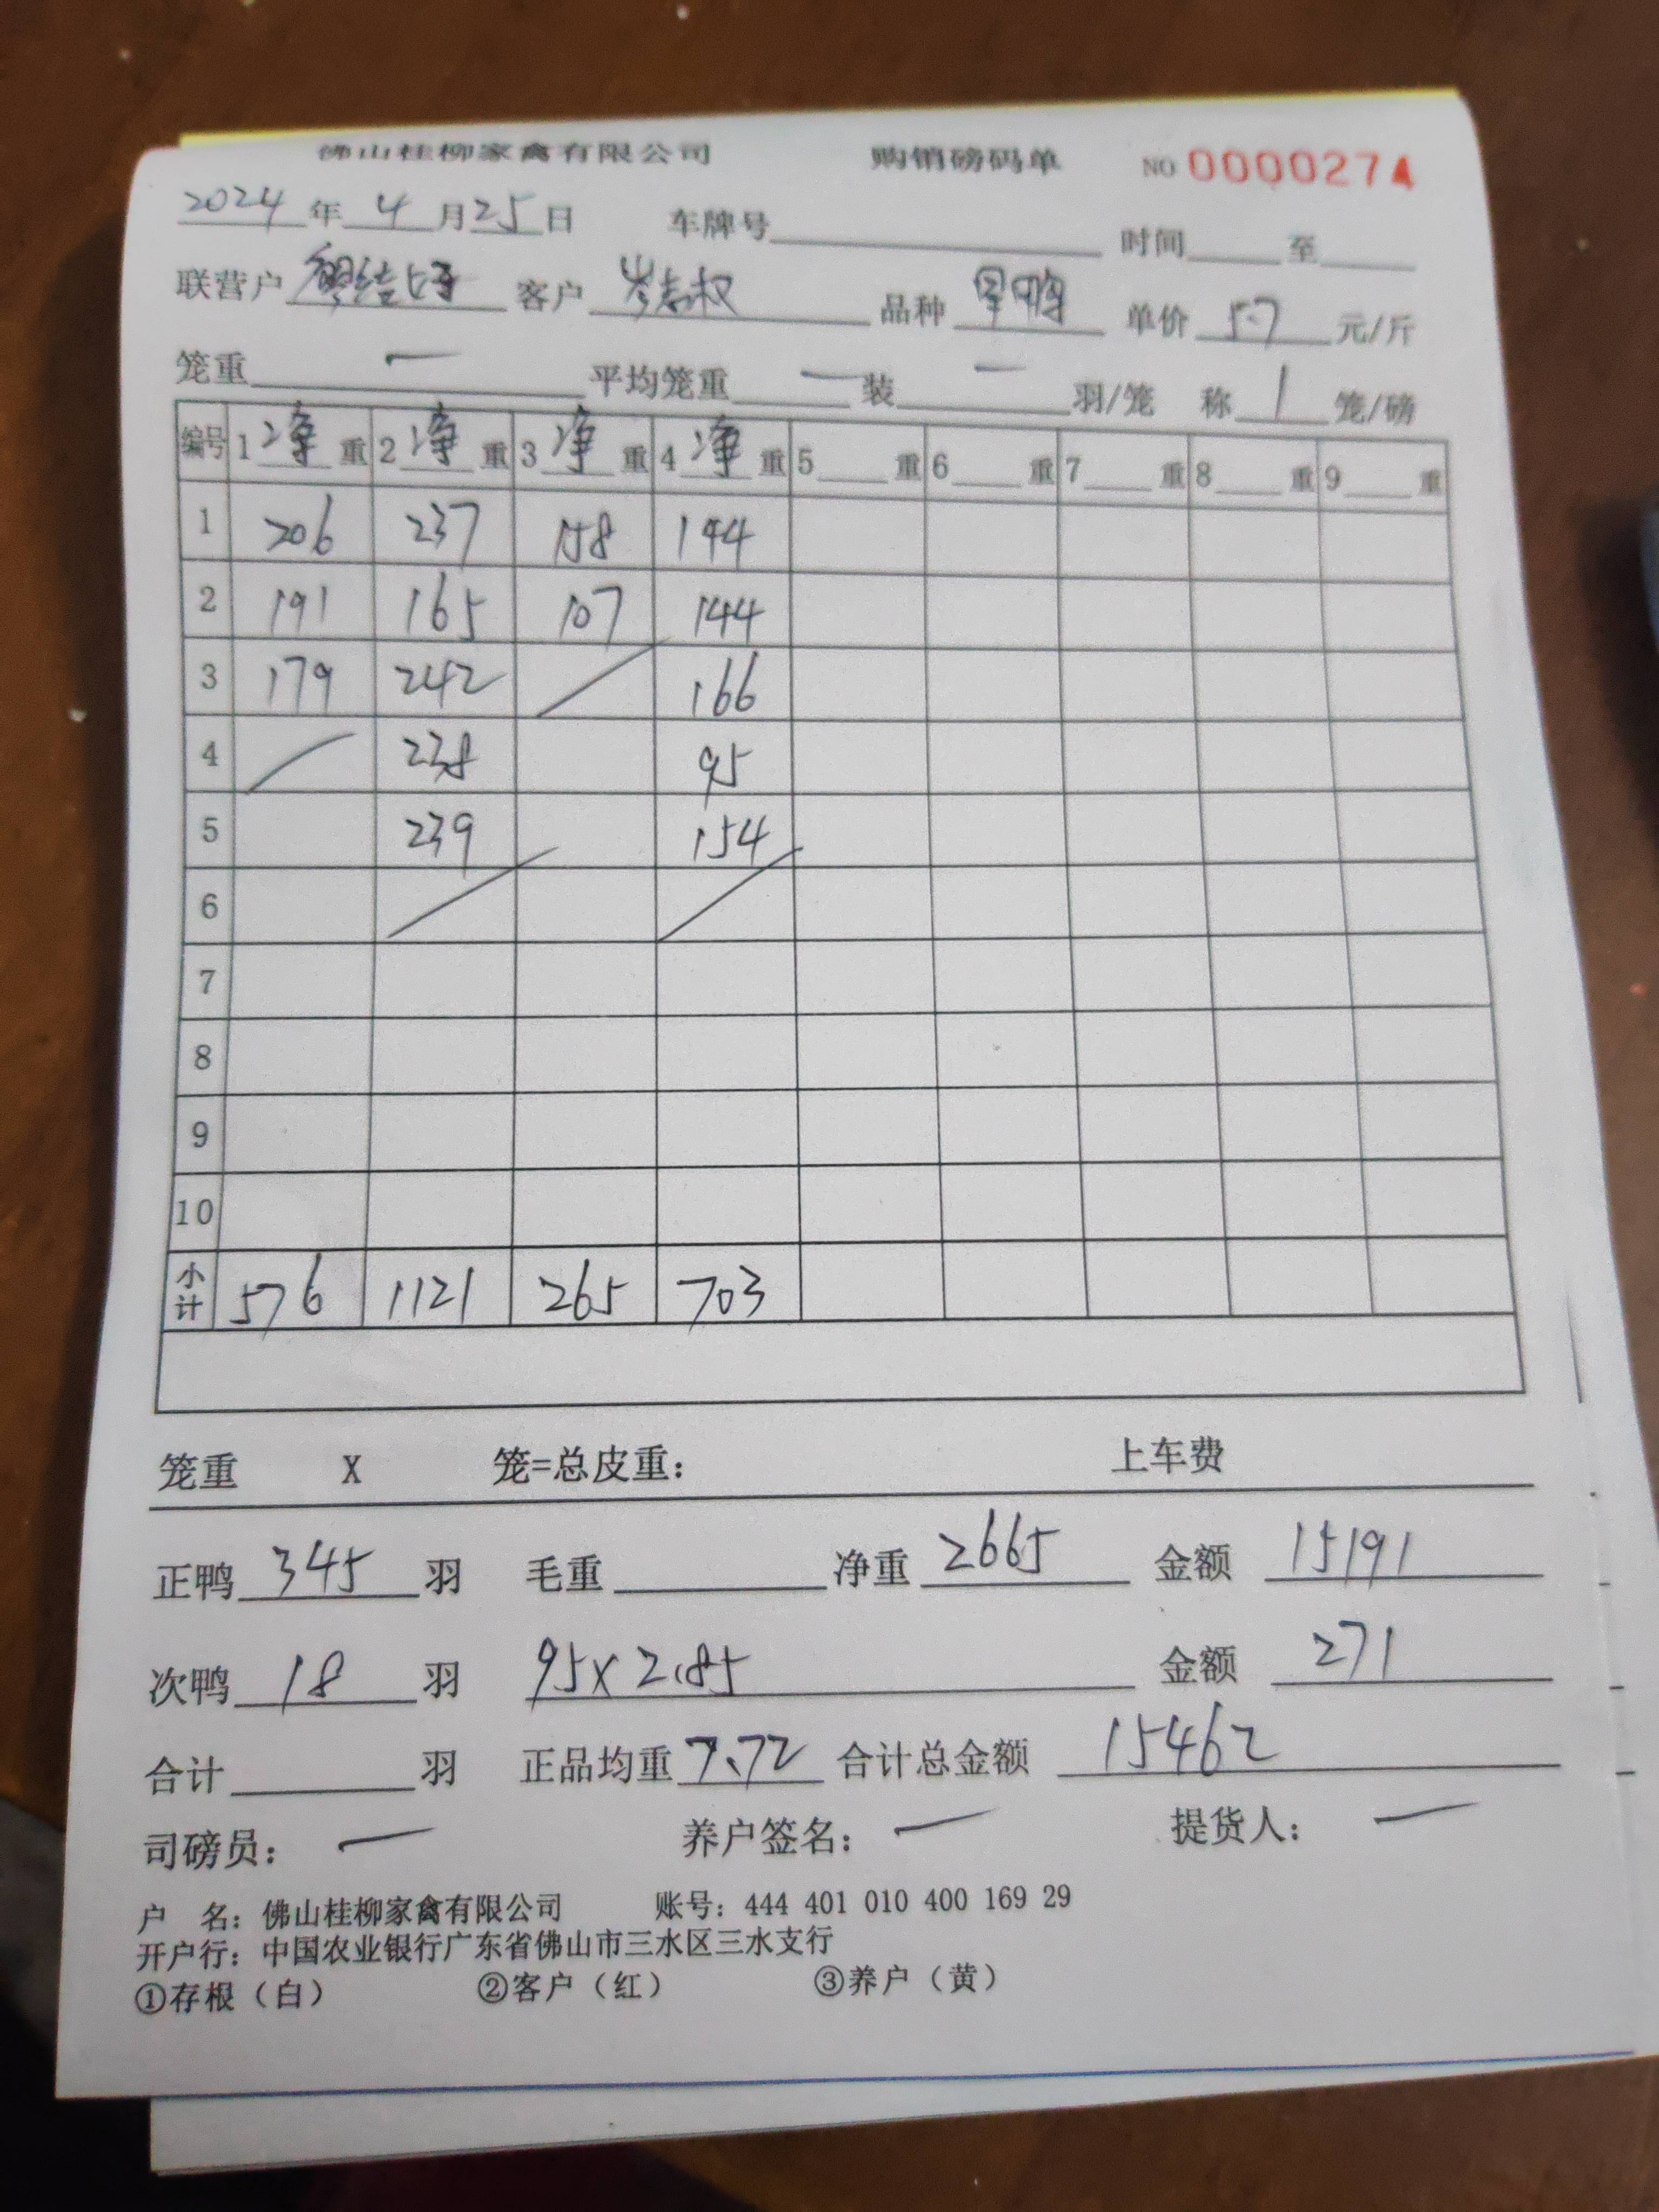 佛山桂柳家禽有限公司 购销磅码单 NO 0000274
2024年4月25日 车牌号 时间 至
联营户 廖结好 客户 岑志权 品种 单价 5.7 元/斤
笼重 一 平均笼重 一 装 一 羽/笼 称 1 笼/磅
编号 1 净 重 2 净 重 3 净 重 4 净 重 5 重 6 重 7 重 8 重 9 重
1 206 237 158 144
2 191 165 107 144
3 179 242 / 166
4 / 238 95
5 239 154
6 / /
7
8
9
10
小计 576 1121 265 703
笼重 X 笼=总皮重: 上车费
正鸭 345 羽 毛重 净重 2665 金额 15191
次鸭 18 羽 95x2.85 金额 271
合计 羽 正品均重 7.72 合计总金额 15462
司磅员: 一 养户签名: 一 提货人: 一
户 名: 佛山桂柳家禽有限公司 账号: 444 401 010 400 169 29
开户行: 中国农业银行广东省佛山市三水区三水支行
①存根（白） ②客户（红） ③养户（黄）